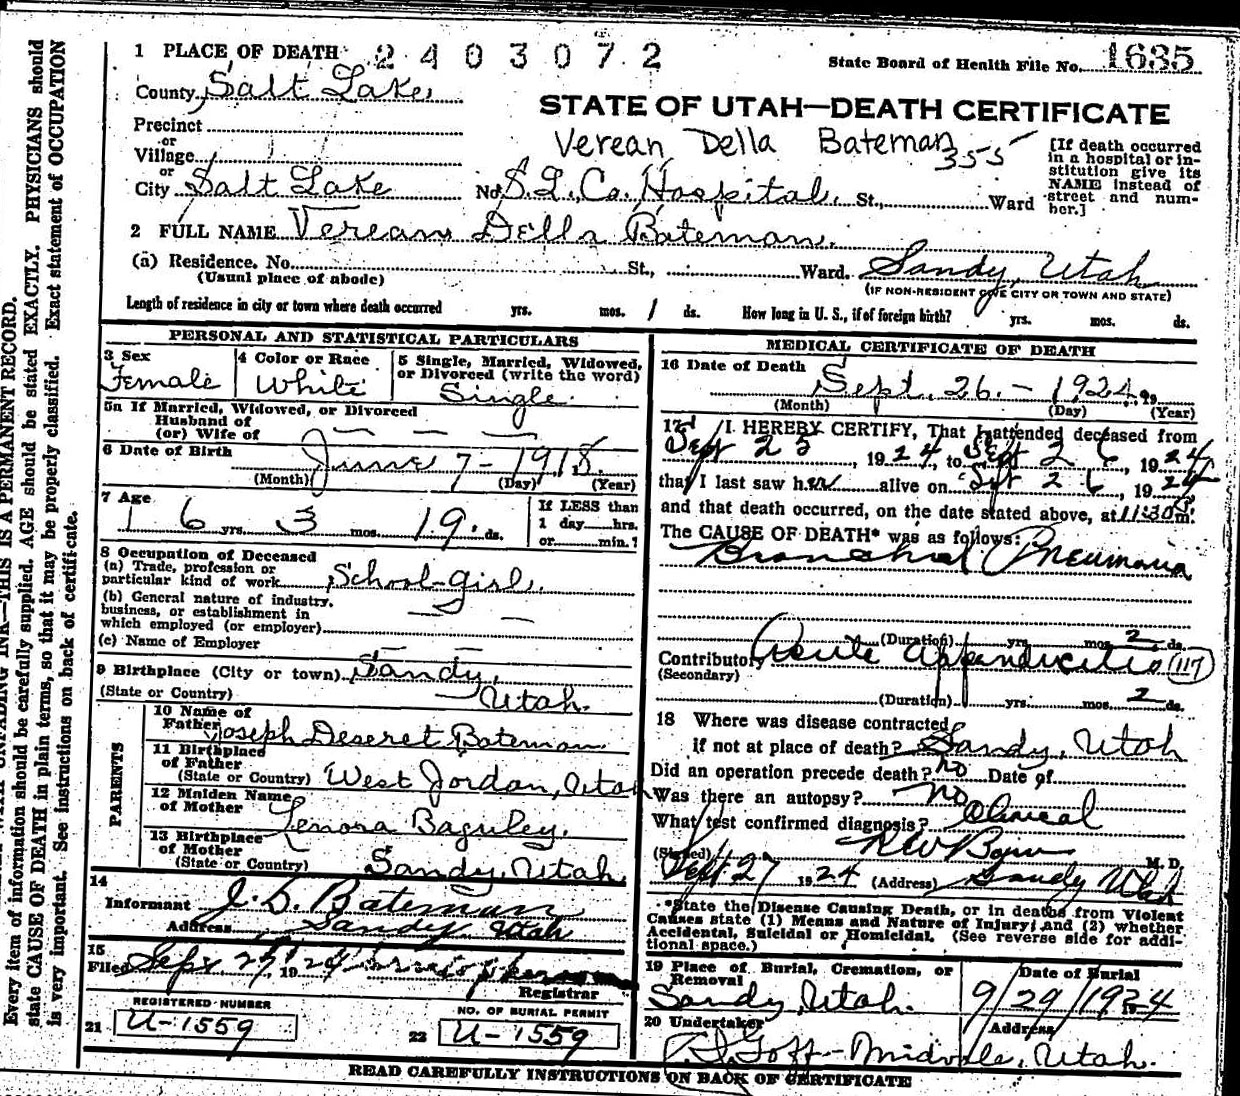 1 PLACE OF DEATH 2403072
State Board of Health File No. 1635
County Salt Lake
STATE OF UTAH—DEATH CERTIFICATE
Precinct
Verean Della Bateman 355
or
Village
or
City Salt Lake No. S.L. Co. Hospital. St., Ward
[If death occurred in a hospital or institution give its NAME instead of street and number.]
2 FULL NAME Verean Della Bateman.
(a) Residence. No. St., Ward. Sandy, Utah
(Usual place of abode)
(IF NON-RESIDENT GIVE CITY OR TOWN AND STATE)
Length of residence in city or town where death occurred yrs. mos. 1 ds. How long in U. S., if of foreign birth? yrs. mos. ds.
PERSONAL AND STATISTICAL PARTICULARS
3 Sex Female
4 Color or Race White
5 Single, Married, Widowed, or Divorced (write the word) Single.
5a If Married, Widowed, or Divorced
Husband of
(or) Wife of — — —
6 Date of Birth June 7-1918.
(Month) (Day) (Year)
7 Age 16 yrs. 3 mos. 19. ds.
If LESS than
1 day hrs.
or min.?
8 Occupation of Deceased
(a) Trade, profession or
particular kind of work School-girl.
(b) General nature of industry,
business, or establishment in
which employed (or employer)
(c) Name of Employer
9 Birthplace (City or town) Sandy,
(State or Country) Utah.
PARENTS
10 Name of
Father Joseph Deseret Bateman
11 Birthplace
of Father
(State or Country) West Jordan, Utah
12 Maiden Name
of Mother Lenora Baguley.
13 Birthplace
of Mother
(State or Country) Sandy, Utah
14
Informant J. D. Bateman
Address Sandy Utah
15
Filed Sept 29 1924
Registrar
REGISTERED NUMBER
21 U-1559
NO. OF BURIAL PERMIT
22 U-1559
MEDICAL CERTIFICATE OF DEATH
16 Date of Death Sept. 26.- 1924.
(Month) (Day) (Year)
17 I HEREBY CERTIFY, That I attended deceased from
Sept 25, 1924, to Sept 26, 1924
that I last saw her alive on Sept 26, 1924
and that death occurred, on the date stated above, at 11:30 m.
The CAUSE OF DEATH* was as follows:
Bronchial Pneumonia
(Duration) yrs. mos. 2 ds.
Contributory Acute Appendicitis 117
(Secondary)
(Duration) yrs. mos. 2 ds.
18 Where was disease contracted
If not at place of death? Sandy, Utah
Did an operation precede death? no Date of
Was there an autopsy? no
What test confirmed diagnosis? Clinical
(Signed) M. D.
Sept 27 1924 (Address) Sandy Utah
*State the Disease Causing Death, or in deaths from Violent
Causes state (1) Means and Nature of Injury; and (2) whether
Accidental, Suicidal or Homicidal. (See reverse side for addi-
tional space.)
19 Place of Burial, Cremation, or
Removal
Sandy, Utah.
Date of Burial
9/29/1924
20 Undertaker Address
Goff-Midvale, Utah.
READ CAREFULLY INSTRUCTIONS ON BACK OF CERTIFICATE
THIS IS A PERMANENT RECORD.
Every item of information should be carefully supplied. AGE should be stated EXACTLY. PHYSICIANS should
state CAUSE OF DEATH in plain terms, so that it may be properly classified. Exact statement of OCCUPATION
is very important. See instructions on back of certificate.